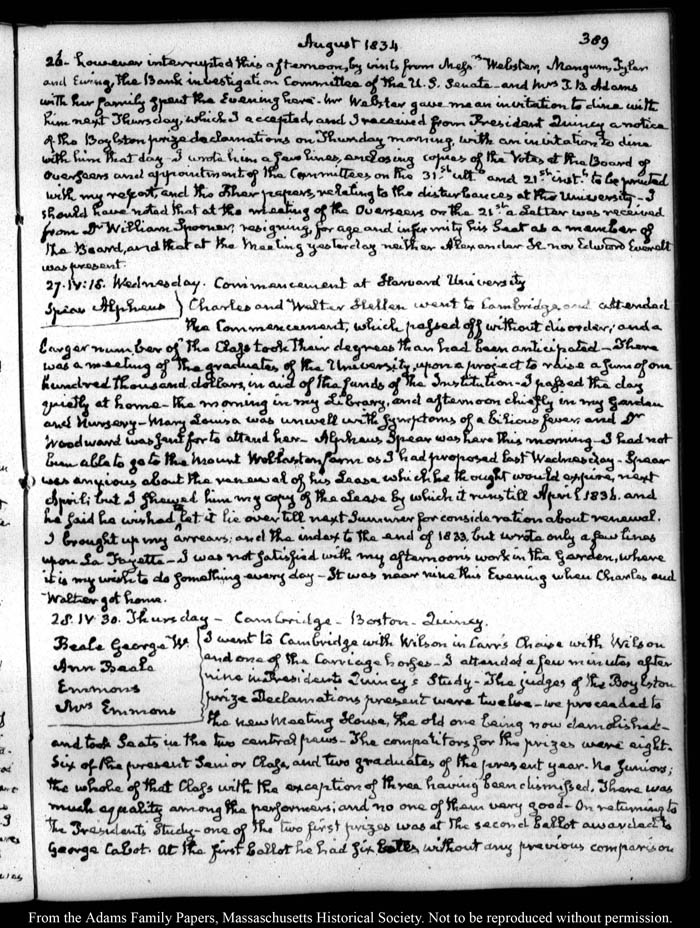 August 1834
389
26- however interrupted this afternoon, by visits from Messrs Webster, Mangum, Tyler
and Ewing, the Bank investigation Committee of the U.S. Senate - and Mrs T. B. Adams
with her family spent the Evening here - Mr Webster gave me an invitation to dine with
him next Thursday, which I accepted, and I received from President Quincy a notice
of the Boylston prize declamations on Thursday morning, with an invitation to dine
with him that day - I wrote him a few lines, enclosing copies of the Votes at the Board of
Overseers and appointment of the Committees on the 31st ulto and 21st inst. to be printed
with my report, and the other papers, relating to the disturbances at the University - I
should have noted that at the meeting of the Overseers on the 21st a Letter was received
from Dr William Spooner, resigning, for age and infirmity his Seat as a member of
the Board, and that at the Meeting yesterday neither Alexander H. nor Edward Everett
was present.
27. IV:15. Wednesday. Commencement at Harvard University
Spear Alpheus } Charles and Walter Hellen went to Cambridge and attended
the Commencement, which passed off without disorder; and a
larger number of the Class took their degrees than had been anticipated - There
was a meeting of the graduates of the University, upon a project to raise a sum of one
hundred thousand dollars, in aid of the funds of the Institution - I passed the day
quietly at home - the morning in my Library, and afternoon chiefly in my Garden
and Nursery - Mary Louisa was unwell with symptoms of a bilious fever, and Dr
Woodward was sent for to attend her - Alpheus Spear was here this morning - I had not
been able to go to the Mount Wollaston farm as I had proposed last Wednesday - Spear
was anxious about the renewal of his Lease which he thought would expire, next
April; but I shewed him my copy of the Lease by which it runs till April 1836. and
he said he wished to let it lie over till next Summer for consideration about renewal.
I brought up my arrears; and the index to the end of 1833. but wrote only a few lines
upon La Fayette - I was not satisfied with my afternoon's work in the Garden, where
it is my wish to do something every day - It was near nine this Evening when Charles and
Walter got home.
28. IV 30. Thursday - Cambridge - Boston - Quincy.
Beale George W. I went to Cambridge with Wilson in Carr's Chaise with Wilson
Ann Beale and one of the Carriage horses - I attended a few minutes after
Emmons nine in President Quincy's Study - The judges of the Boylston
Mrs Emmons prize Declamations present were twelve - we proceeded to
the new Meeting House, the old one being now demolished -
and took Seats in the two central pews - The competitors for the prizes were eight.
Six of the present Senior Class, and two graduates of the present year. No Juniors;
the whole of that Class with the exception of three having been dismissed. There was
much equality among the performers; and no one of them very good - On returning to
the Presidents Study - one of the two first prizes was at the second ballot awarded to
George Cabot. At the first ballot he had six without any previous comparison
From the Adams Family Papers, Massachusetts Historical Society. Not to be reproduced without permission.